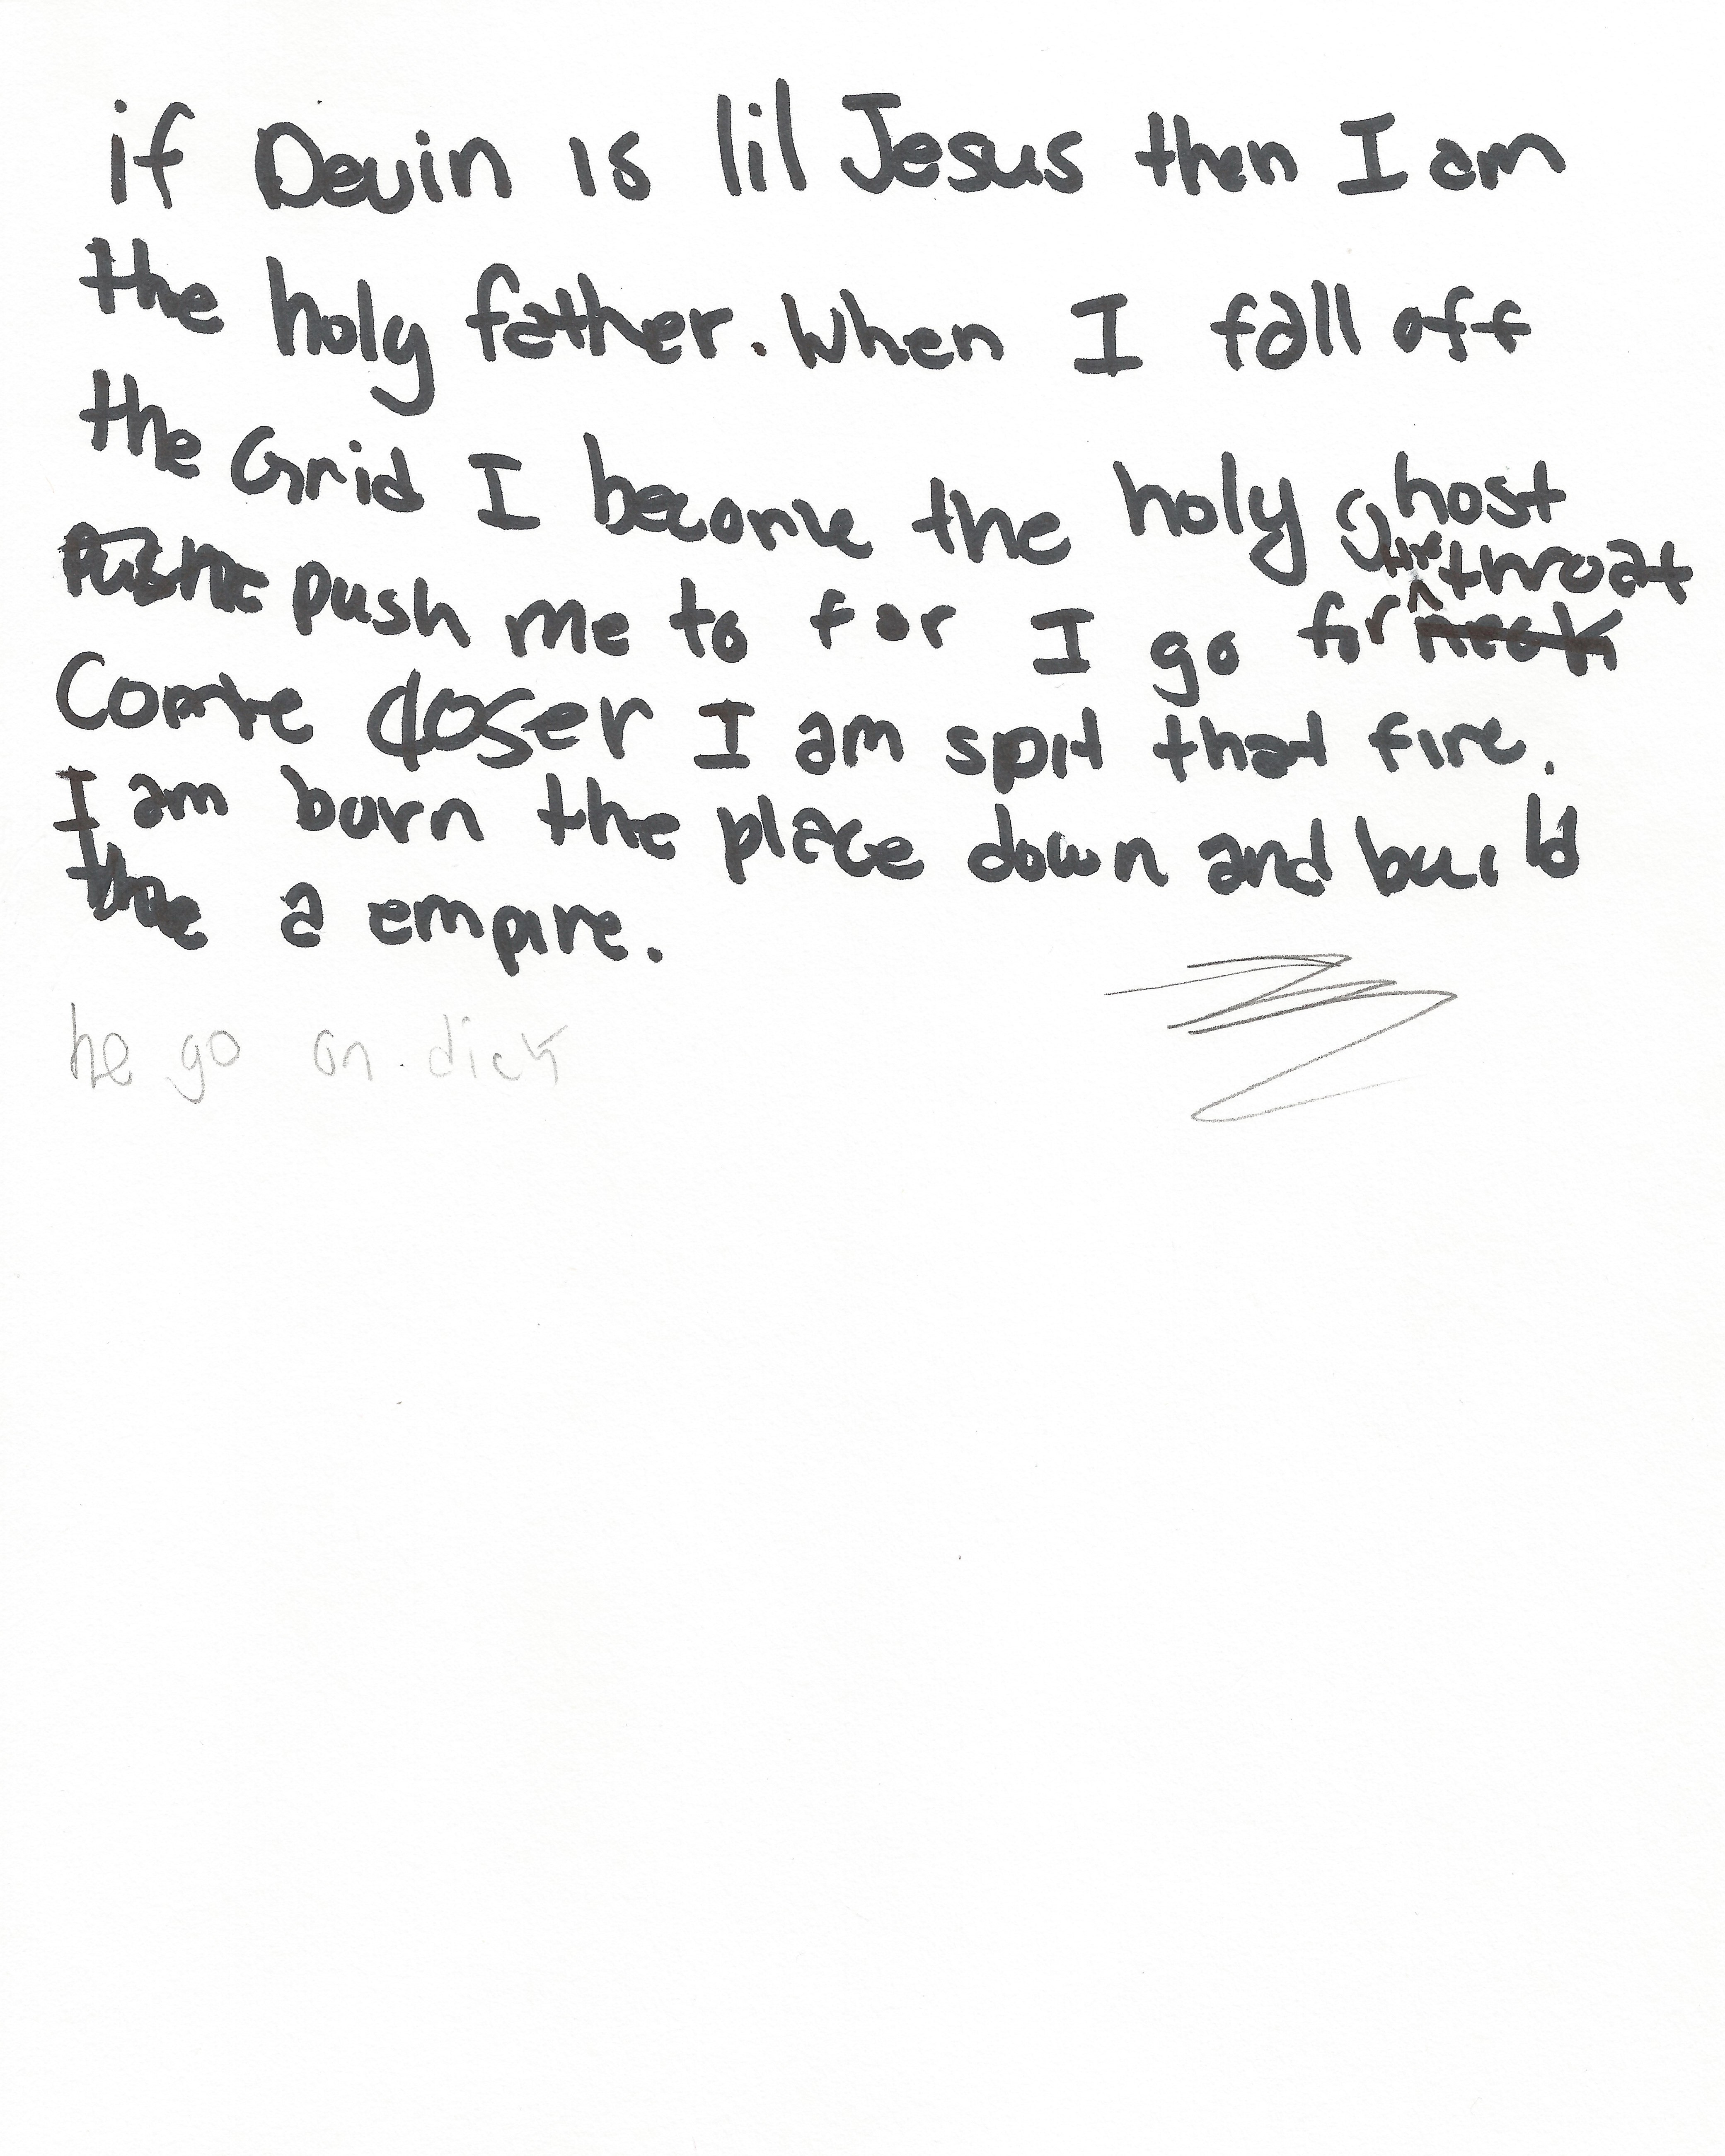 if Devin is lil Jesus then I am
the holy father. When I fall off
the Grid I become the holy Ghost
push me to far I go for the throat
Come closer I am spit that fire.
I am burn the place down and build
a empire.
he go on dick